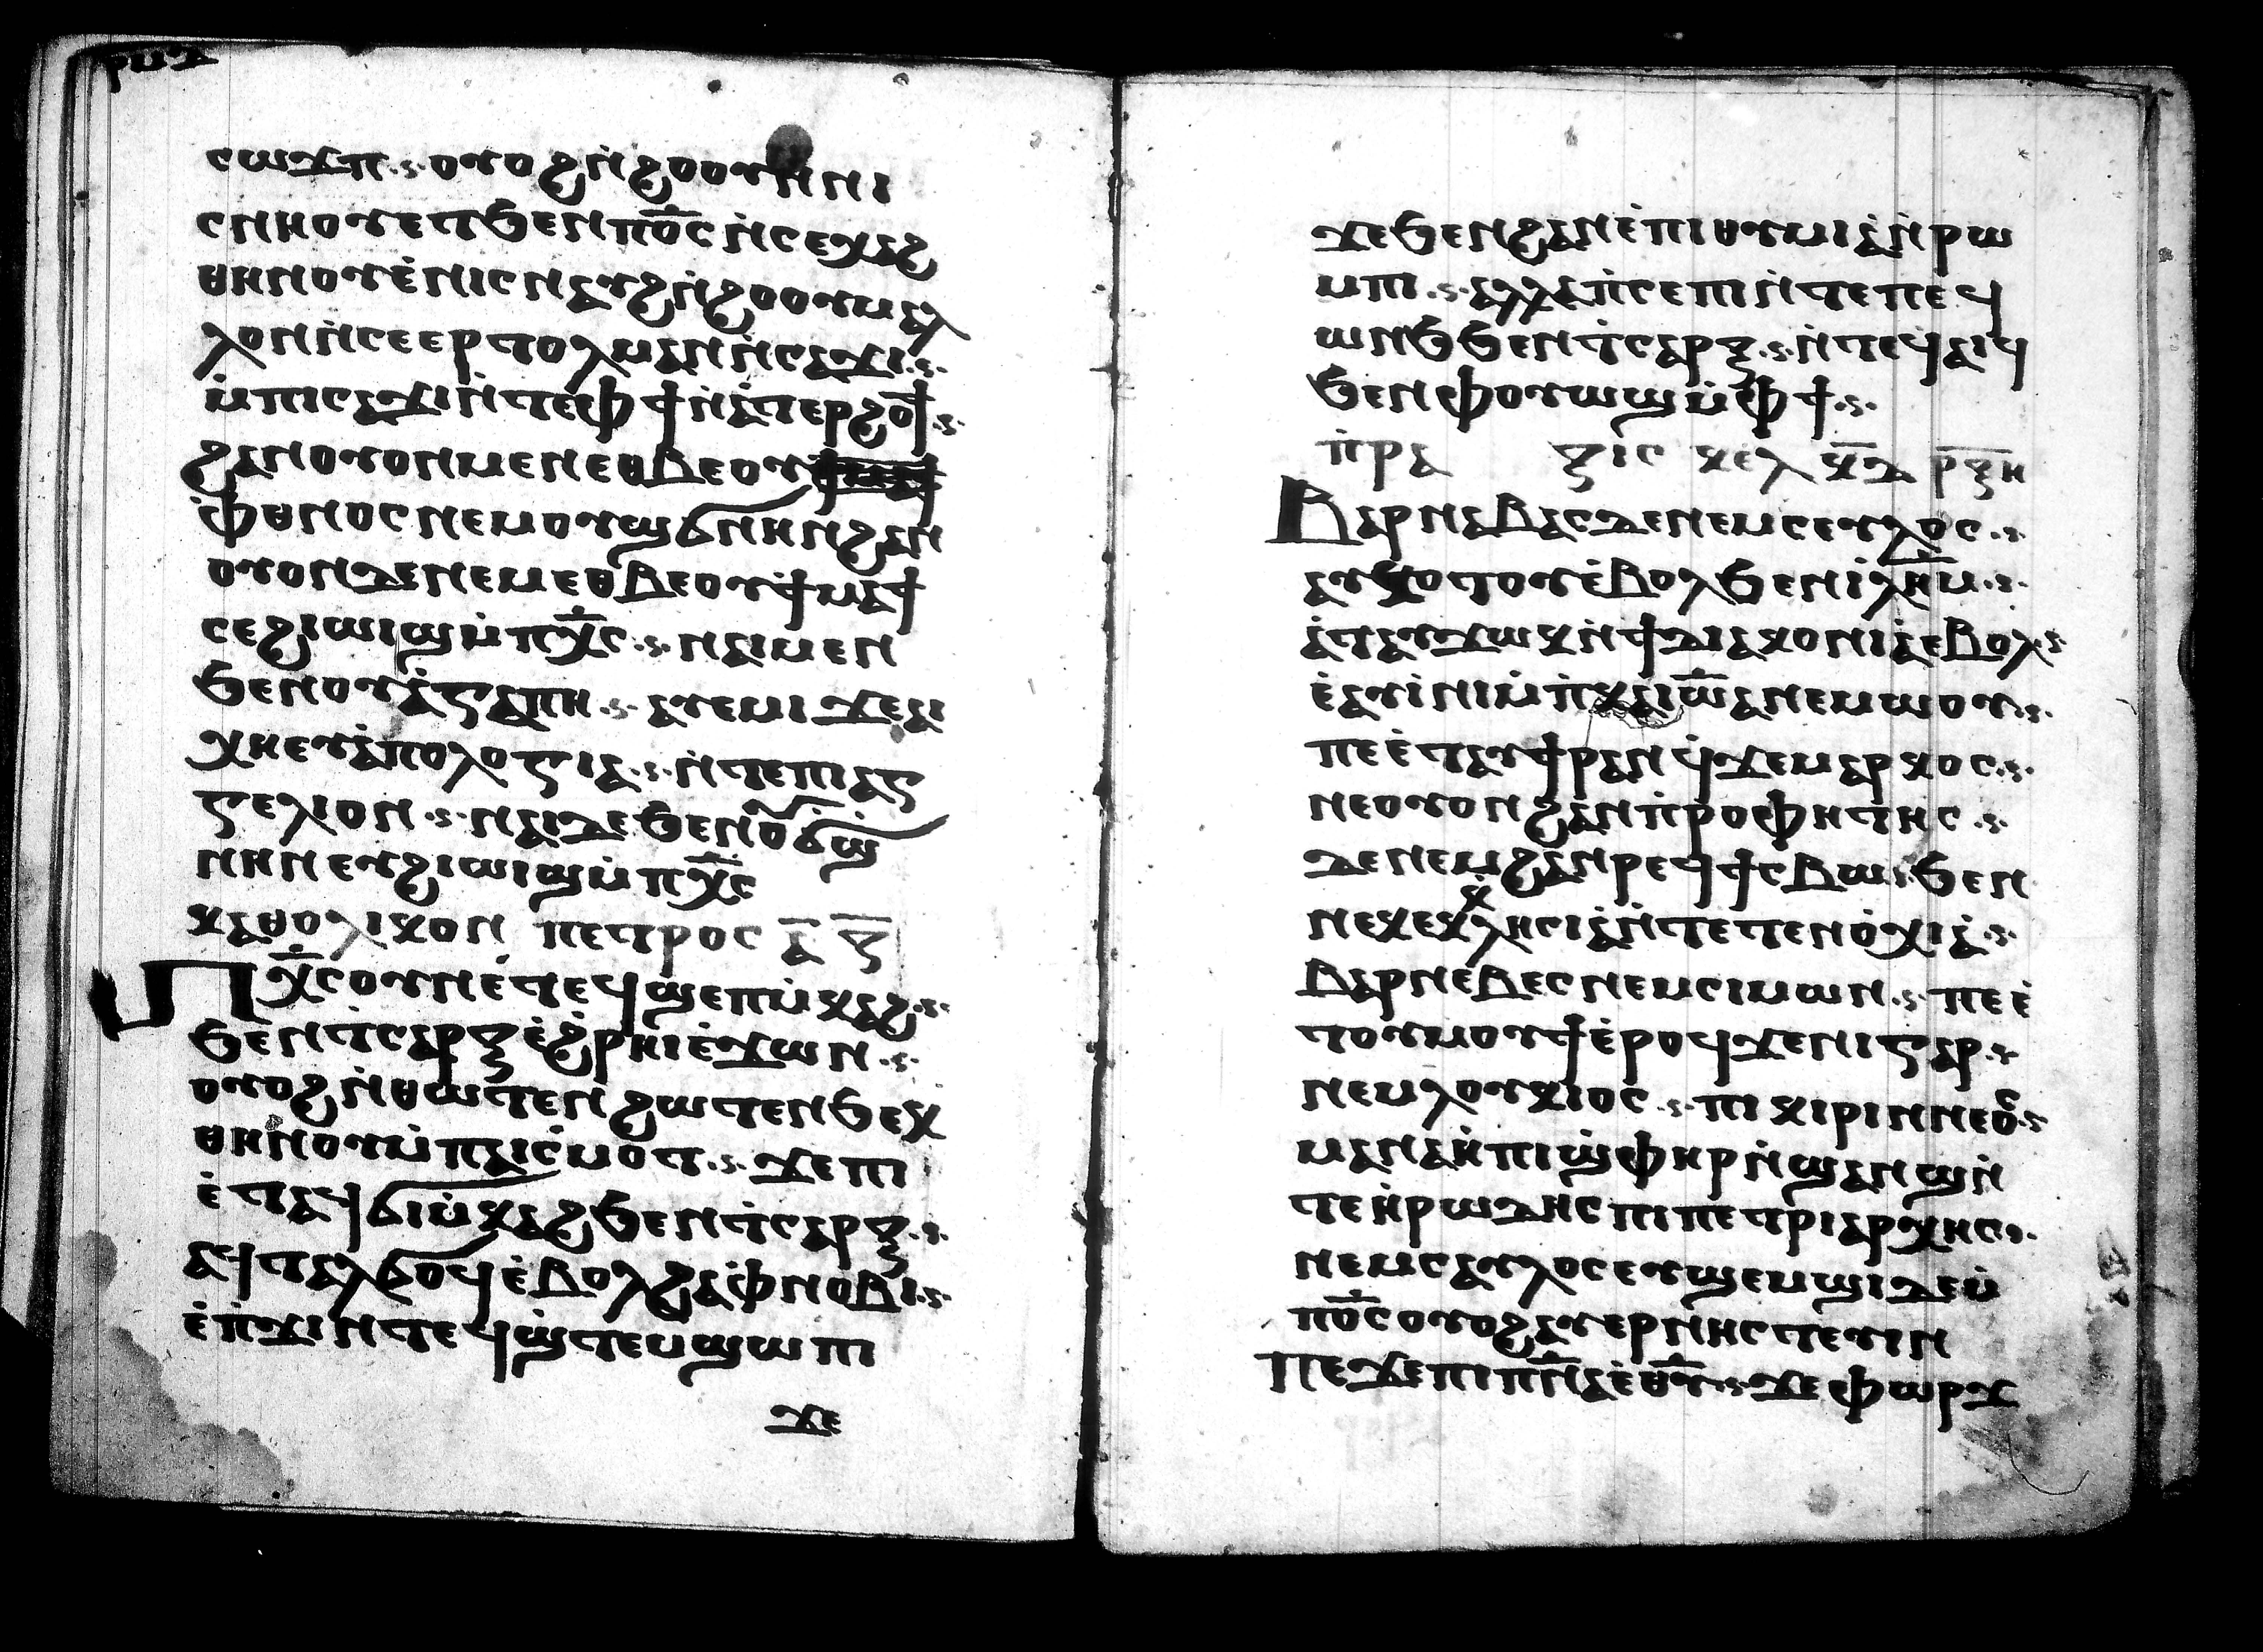 ⲣⲙⲇ
ⲥⲱϫⲡ ⲟⲩⲟϩ ⲛ̇ϩⲟⲩⲟ ⲛⲛⲓ
ⲥⲛⲏⲟⲩ ⲉⲧϧⲉⲛ ⲡⲟ̅ⲥ ⲛ̇ⲥⲉⲭⲁϩ
ⲑⲏⲛⲟⲩ ⲉ̇ⲛⲓⲥⲛⲁⲩϩ ⲛ̇ϩⲟⲟⲩ ⲙⲁⲗ
ⲗⲟⲛ ⲛ̇ⲥⲉⲉⲣⲧⲟⲗⲙⲁⲛ ⲛ̇ⲥⲁϫⲓ
ⲙ̇ⲡⲓⲥⲁϫⲓ ⲛ̇ⲧⲉⲫϯ ⲛ̇ⲁ̇ⲧⲉⲣϩⲟϯ
ϩⲁⲛⲟⲩⲟⲛ ⲙⲉⲛ ⲉⲑⲃⲉ ⲟⲩ
ⲫ̇ⲑⲛⲟⲥ ⲛⲉⲙ ⲟⲩϣϭⲛⲏⲛ ϩⲁⲛ
ⲟⲩⲟⲛ ⲇⲉ ⲛⲉⲙ ⲉⲑⲃⲉ ⲟⲩϯⲙⲁϯ
ⲥⲉϩⲓⲱⲓϣ ⲙ̇ⲡⲭ̅ⲥ ⲛⲁⲓ ⲙⲉⲛ
ϧⲉⲛ ⲟⲩⲁ̇ⲅⲁⲡⲏ ⲁⲩⲉⲙⲓ ϫⲉ ⲁⲓ
ⲭⲏ ⲉⲩⲁ̇ⲡⲟⲗⲟⲅⲓⲁ ⲛ̇ⲧⲉⲡⲓⲁⲅ
ⲅⲉⲗⲓⲟⲛ ⲛⲁⲓ ⲇⲉ ϧⲉⲛ ⲟⲩϭϣ̇
ⲛⲏⲛ ⲉⲩϩⲓⲱⲓϣ ⲙ̇ⲡⲭ̅ⲥ
ⲕⲁⲑⲟⲗⲓⲕⲟⲛ ⲡⲉⲧⲣⲟⲥ ⲁ̅ ⲝ̅
ⲡⲭ̅ⲥ ⲟⲩⲛ ⲉ̇ⲧⲉϥϣⲉⲡⲙ̇ⲕⲁϩ
ϧⲉⲛ ⲧ̇ⲥⲁⲣⲝ ⲉ̇ϩ̇ⲣⲏⲓ ⲉ̇ϫⲱⲛ
ⲟⲩⲟϩ ⲛ̇ⲑⲱⲧⲉⲛ ϩⲱⲧⲉⲛ ϧⲉⲕ
ⲑⲏⲛⲟⲩ ⲙ̇ⲡⲁⲓⲥ̇ⲙⲟⲧ ϫⲉ ⲡⲓ
ⲉ̇ⲧⲁϥϭⲓⲙ̇ⲕⲁϩ ϧⲉⲛ ⲧ̇ⲥⲁⲣⲝ
ⲁϥⲧⲁⲗϭⲟϥ ⲉ̇ⲃⲟⲗ ϩⲁ ⲫ̇ⲛⲟⲃⲓ
ⲉ̇ⲡ̇ϫⲓⲛⲧⲉϥϣ̇ⲧⲉⲙϣⲱⲡⲓ
ϫⲉ
ϫⲉ ϧⲉⲛ ϩⲁⲛⲉ̇ⲡⲓⲑⲩⲙⲓⲁ̇ ⲛ̇ⲣⲱ
ⲙⲓ ⲁⲗⲗⲁ ⲡ̇ⲥⲉⲡⲓ ⲛ̇ⲧⲉ ⲡⲉϥ
ⲱⲛϧ ϧⲉⲛ ⲧ̇ⲥⲁⲣⲝ ⲛ̇ⲧⲉϥⲁⲓϥ
ϧⲉⲛ ⲫⲟⲩⲱϣ ⲙ̇ⲫϯ
ⲡ̇ⲣⲁ ⲝⲓⲥ ⲕⲉⲗ ⲕ̅ⲇ̅ ⲣ̅ⲝ̅ⲏ̅
Ⲃⲁⲣⲛⲁⲃⲁⲥ ⲇⲉ ⲛⲉⲙ ⲥⲉⲩⲗⲟⲥ
ⲁⲩⲕⲟⲧⲟⲩ ⲉ̇ⲃⲟⲗ ϧⲉⲛ ⲓ̇ⲗ̅ⲏ̅ⲙ
ⲁ̇ⲧⲁⲩϫⲱⲕ ⲛ̇ϯⲇⲓⲁⲕⲟⲛⲓⲁ̇ ⲉⲃⲟⲗ
ⲉ̇ⲁⲩⲓ̇ⲛⲓ ⲙ̇ⲡ̇ⲕⲁⲓⲱ̅ⲁ ⲛⲉⲙⲱⲟⲩ
ⲡⲉ ⲉ̇ⲧⲁⲩϯⲣⲁⲛϥ ϫⲉ ⲙⲁⲣⲕⲟⲥ
ⲛⲉ ⲟⲩⲟⲛ ϩⲁⲛⲡ̇ⲣⲟⲫⲏⲧⲏⲥ
ⲇⲉ ⲛⲉⲙ ϩⲁⲛⲣⲉϥϯⲥⲃⲱ ϧⲉⲛ
ⲛⲉⲕⲉⲕ̇ⲗⲏⲥⲓⲁ̇ ⲛ̇ⲧⲉ ⲧⲉⲛⲟ̇ⲭⲓⲁ̇
ⲃⲁⲣⲛⲉⲃⲉⲥ ⲛⲉⲙ ⲥⲓⲙⲱⲛ ⲡⲉ ⲉ̇
ⲧⲟⲩⲙⲟⲩϯ ⲉ̇ⲣⲟϥ ϫⲉ ⲛⲓⲅⲁⲣ
ⲛⲉⲙ ⲗⲟⲩⲕⲓⲟⲥ ⲡⲓⲕⲓⲣⲓⲛⲛⲉⲟⲥ
ⲙⲁⲛⲁⲏ̇ ⲡⲓϣ̇ⲫⲏⲣ ⲛ̇ϣⲁⲛϣ ⲛ̇
ⲧⲉ ⲏ̇ⲣⲱⲇⲏⲥ ⲡⲓⲡⲉⲧⲣⲓⲁⲣⲭⲏⲥ
ⲛⲉⲙ ⲥⲁⲩⲗⲟⲥ ⲉⲩϣⲉⲙϣⲓ ⲇⲉ ⲙ̇
ⲡⲟ̅ⲥ ⲟⲩⲟϩ ⲁⲩⲉⲣⲛⲏⲥⲧⲉⲩⲓⲛ
ⲡⲉϫⲉ ⲡⲓⲡⲛ̅ⲁ ⲉ̇ⲑ̅ⲩ ϫⲉ ⲫⲱⲣϫ